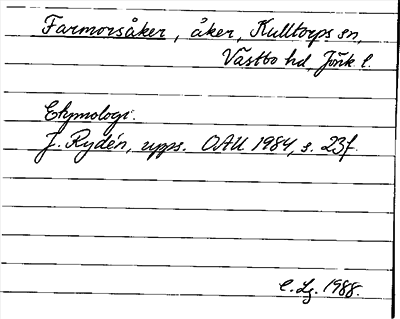 Farmorsåker, åker, Kulltorps sn,
Västbo hd, Jönk l.
Etymologi.
J. Rydén, upps. OAU 1984, s. 23f.
E. Lg. 1988.